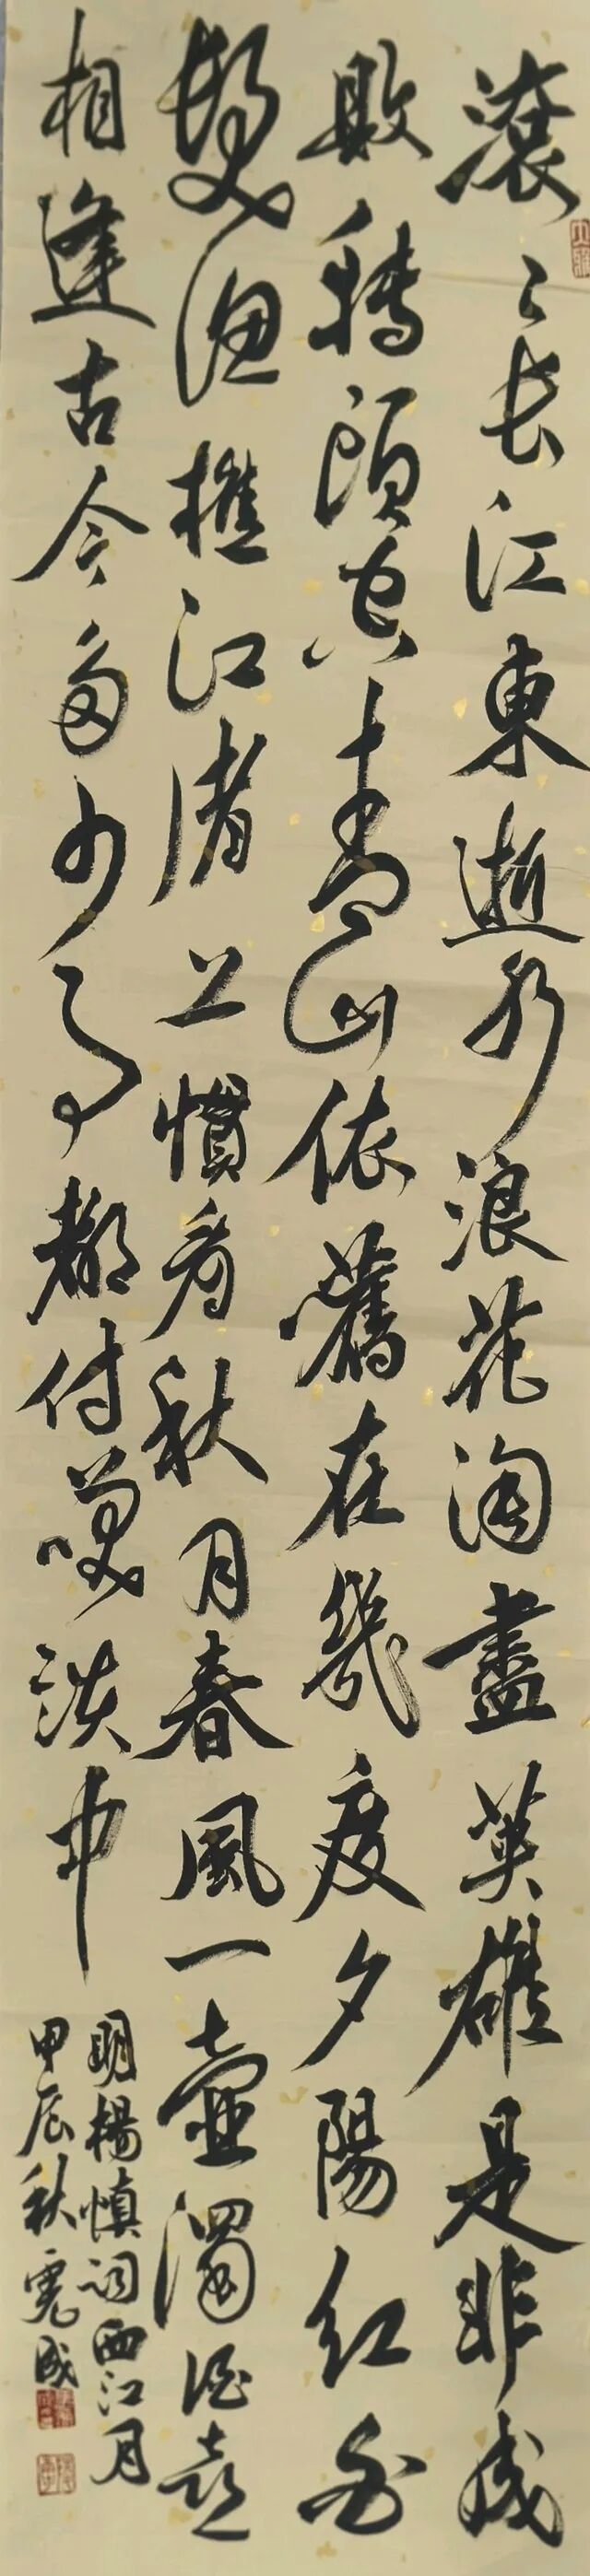 滚〻长江東逝水浪花淘盡英雄是非成
敗轉頭空青山依舊在幾度夕陽紅白
髮漁樵江渚上慣看秋月春風一壺濁酒喜
相逢古今多少事都付笑談中
明楊慎詞西江月
甲辰秋 成